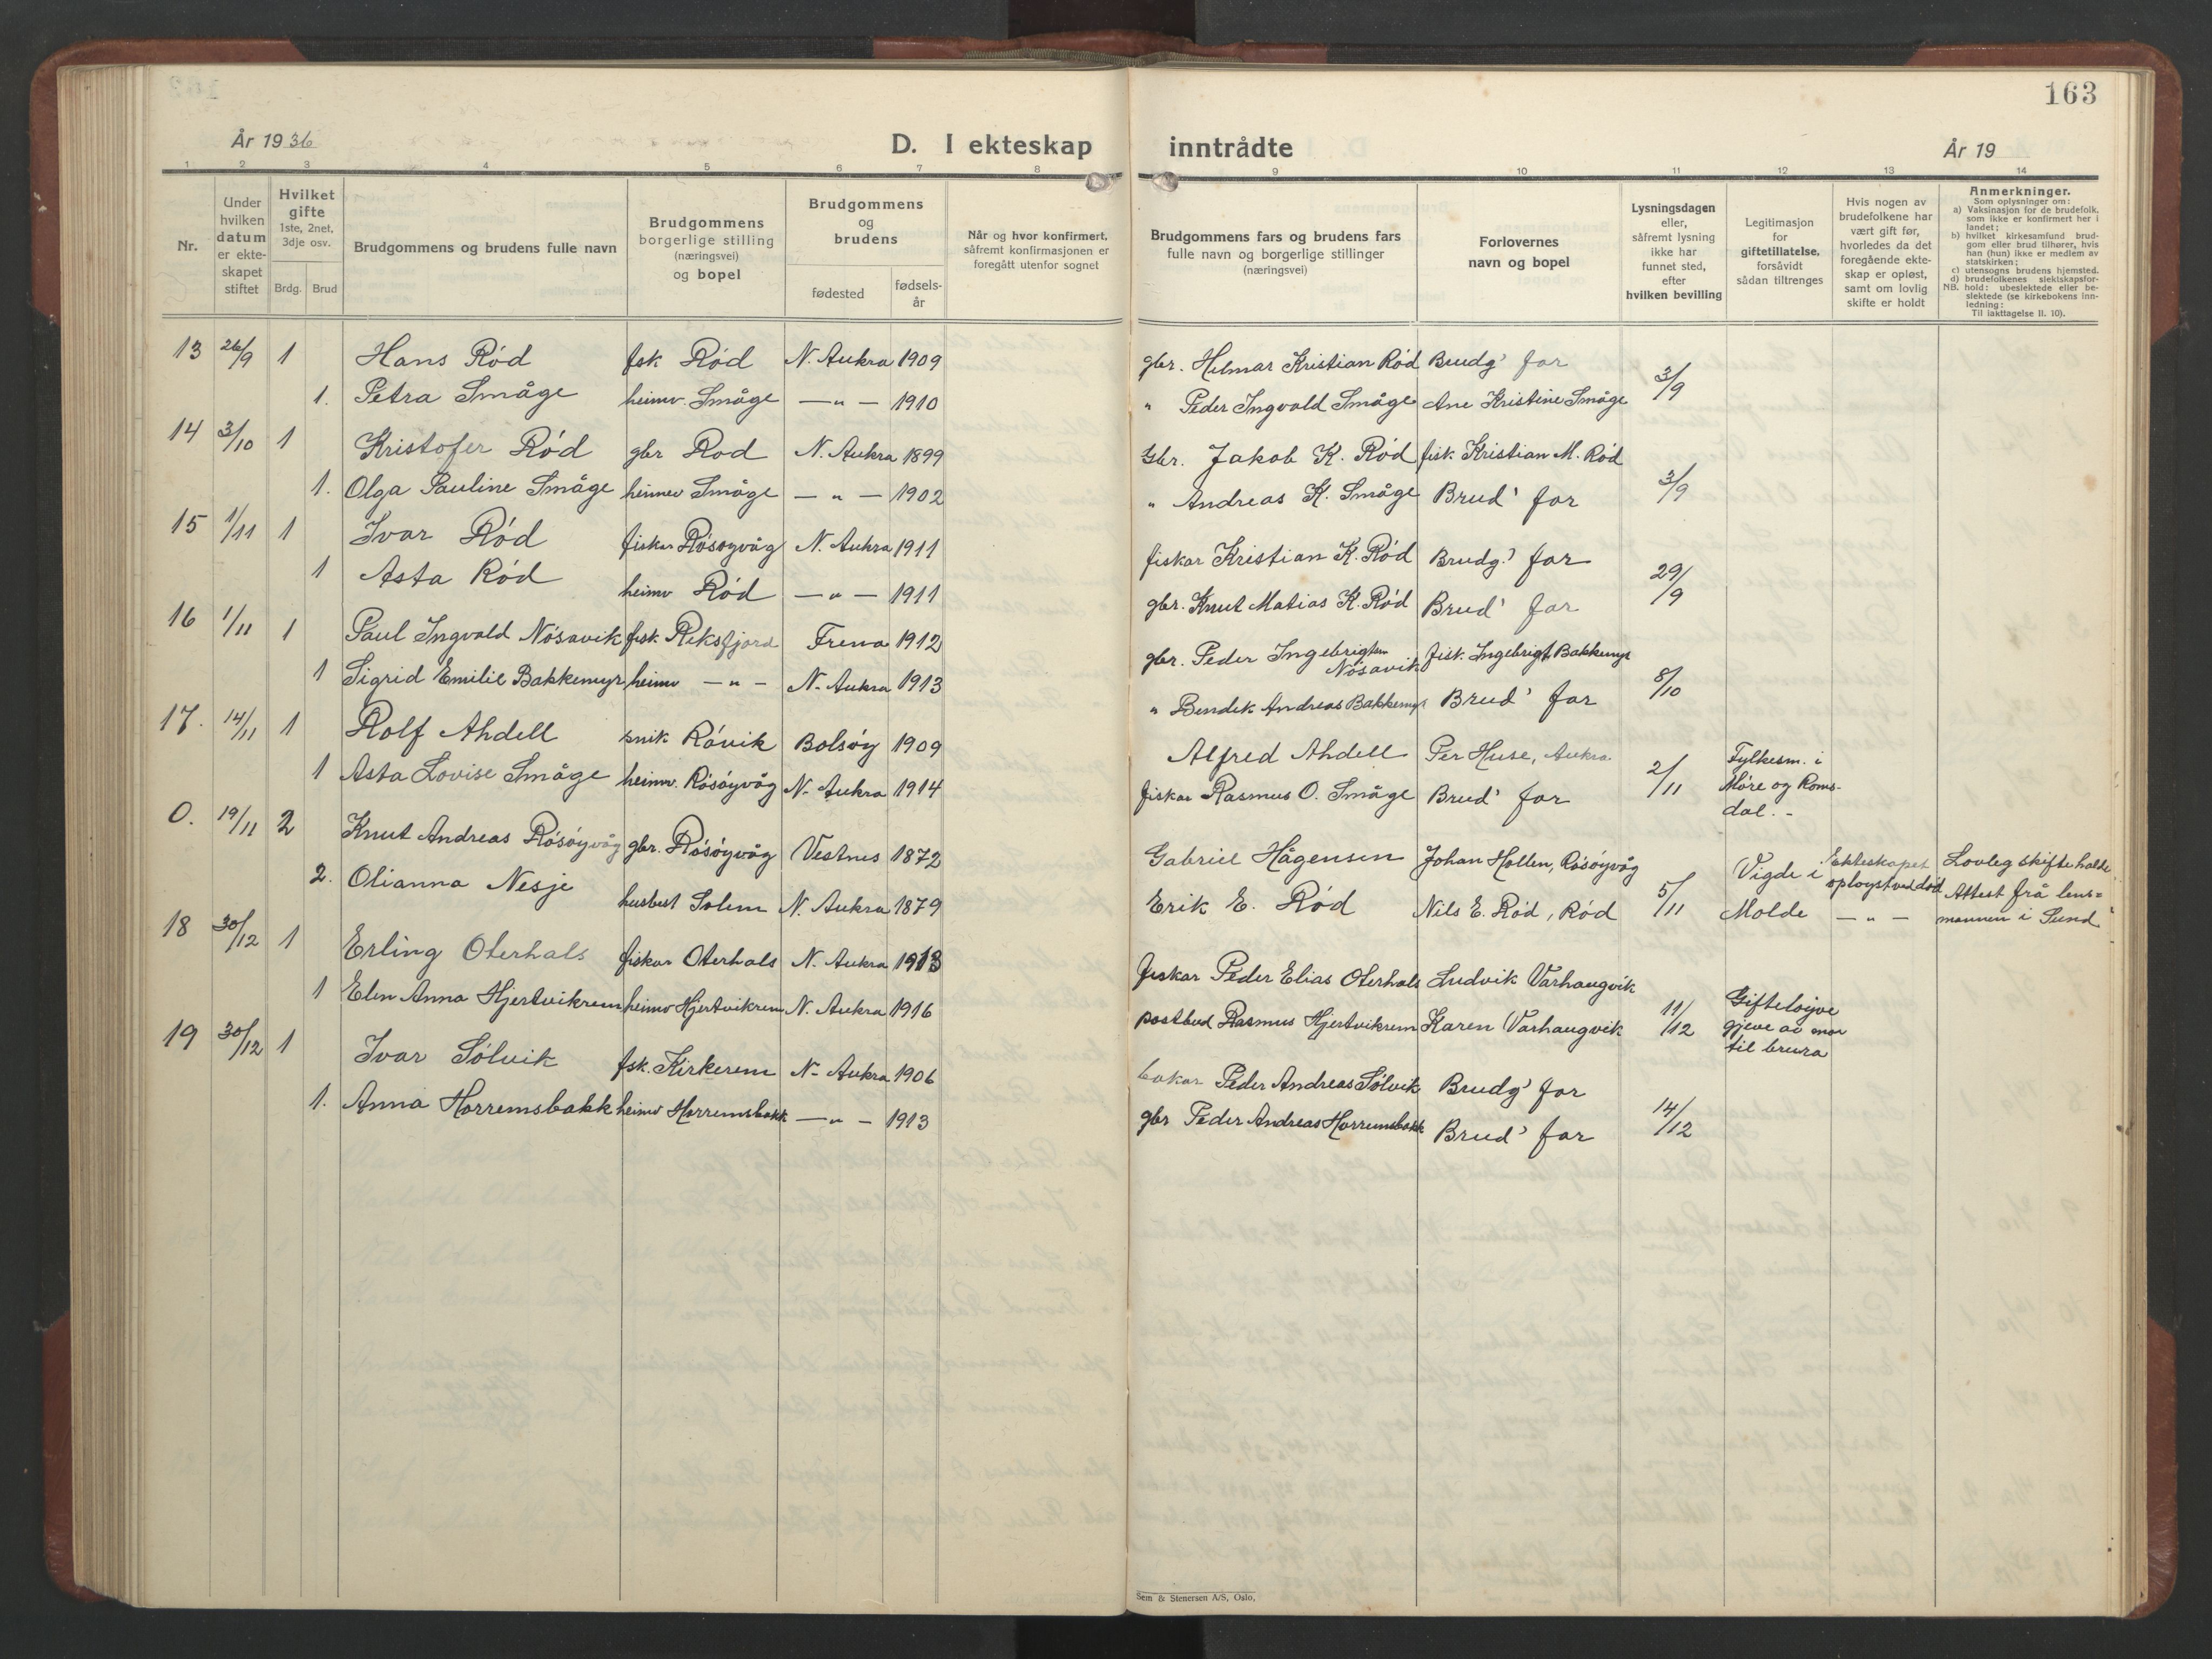 163
År 1936
D. I ekteskap inntrådte
År 19
1 2 3 4 5 6 7 8 9 10 11 12 13 14
Nr.
Under hvilken datum er ekte- skapet stiftet
Hvilket gifte 1ste, 2net, 3dje osv.
Brdg. Brud
Brudgommens og brudens fulle navn
Brudgommens borgerlige stilling (næringsvei) og bopel
Brudgommens og brudens
fødested
fødsels- år
Når og hvor konfirmert, såfremt konfirmasjonen er foregått utenfor sognet
Brudgommens fars og brudens fars fulle navn og borgerlige stillinger (næringsvei)
Forlovernes navn og bopel
Lysningsdagen eller, såfremt lysning ikke har funnet sted, efter hvilken bevilling
Legitimasjon for giftetillatelse, forsåvidt sådan tiltrenges
Hvis nogen av brudefolkene har vært gift før, hvorledes da det foregående ekte- skap er opløst, samt om lovlig skifte er holdt
Anmerkninger.
Som oplysninger om:
a) Vaksinasjon for de brudefolk, som ikke er konfirmert her i landet;
b) hvilket kirkesamfund brud- gom eller brud tilhører, hvis han (hun) ikke er medlem av statskirken;
c) utensogns brudens hjemsted.
d) brudefolkenes slektskapsfor- hold: ubeslektede eller be- slektede (se kirkebokens inn- ledning:
NB.
Til iakttagelse II. 10).
13 26/9 1 Hans Rød fsk Rød N. Aukra 1909 gbr. Hilmar Kristian Rød Brudg' far
1. Petra Småge heimv. Småge — " — 1910 " Peder Ingvald Småge Ane Kristine Småge 3/9
14 3/10 1 Kristofer Rød gbr Rød N. Aukra 1899 Gbr. Jakob K. Rød fisk. Kristian M. Rød
1. Olga Pauline Småge heimev Småge — " — 1902 " Andreas K. Småge Brud' far 3/9
15 1/11 1 Ivar Rød fiskar Røsøyvåg N. Aukra 1911 fiskar Kristian K. Rød Brudg.' far
1 Asta Rød heimv Rød — " — 1911 gbr. Knut Matias K. Rød Brud' far 29/9
16 1/11 1 Paul Ingvald Nøsavik fisk. Riksfjord Frena 1912 gbr. Peder Ingebrigtsen Nøsavik fisk. Ingebrigt Bakkemyr
1 Sigrid Emilie Bakkemyr heimv — " — N. Aukra 1913 " Bendik Andreas Bakkemyr Brud' far 8/10
17. 14/11 1 Rolf Ahdell snik Røvik Bolsøy 1909 Alfred Ahdell Per Huse, Aukra
1 Asta Lovise Småge heimv. Røsøyvåg N. Aukra 1914 fiskar Rasmus O. Småge Brud' far 2/11 Fylkesm. i Møre og Roms- dal. -
0. 19/11 2 Knut Andreas Røsøyvåg gbr. Røsøyvåg Vestnes 1872 Gabriel Hågensen Johan Hollen, Røsøyvåg
2. Olianna Nesje husbest Solem N. Aukra 1879 Erik E. Rød Nils E. Rød, Rød 5/11 Vigde i Molde Ekteskapet oployst ved død — " — Lovleg skifte halde. Attest frå lens= mannen i Sund
18 30/12 1 Erling Oterhals fiskar Oterhals N. Aukra 1913 fiskar Peder Elias Oterhals Ludvik Varhaugvik
1 Elen Anna Hjertvikrem heimv Hjertvikrem N. Aukra 1916 postbud Rasmus Hjertvikrem Karen Varhaugvik 11/12 Gifteløyve gjeve av mor til brura
19 30/12 1 Ivar Sølvik fsk. Kirkerem N. Aukra 1906 bakar Peder Andreas Sølvik Brudg' far
1. Anna Horremsbakk heimv Horremsbakk — " — 1913 gbr Peder Andreas Horremsbakk Brud' far 14/12
Sem & Stenersen A/S, Oslo.